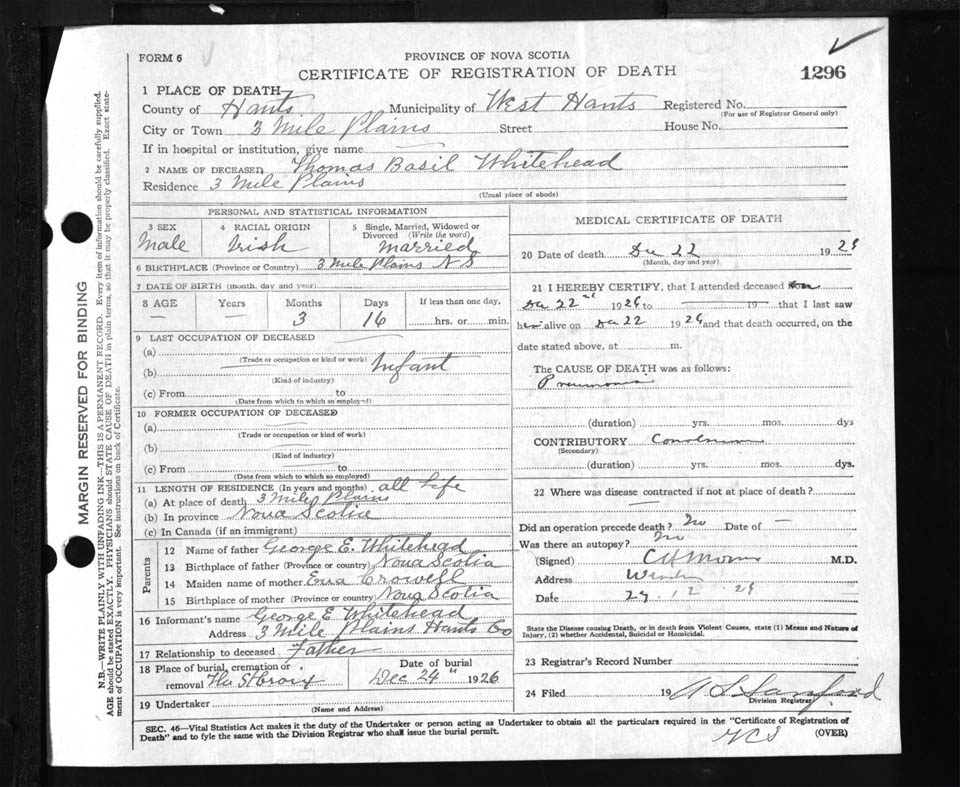 FORM 6
PROVINCE OF NOVA SCOTIA
CERTIFICATE OF REGISTRATION OF DEATH
1296
1 PLACE OF DEATH
County of Hants Municipality of West Hants Registered No.
(For use of Registrar General only)
City or Town 3 Mile Plains Street House No.
If in hospital or institution, give name
2 NAME OF DECEASED Thomas Basil Whitehead
Residence 3 Mile Plains
(Usual place of abode)
MARGIN RESERVED FOR BINDING
N.B.—WRITE PLAINLY WITH UNFADING INK—THIS IS A PERMANENT RECORD. Every item of information should be carefully supplied.
AGE should be stated EXACTLY. PHYSICIANS should STATE CAUSE OF DEATH in plain terms, so that it may be properly classified. Exact state-
ment of OCCUPATION is very important. See instructions on back of Certificate.
PERSONAL AND STATISTICAL INFORMATION
3 SEX
Male
4 RACIAL ORIGIN
Irish
5 Single, Married, Widowed or
Divorced (Write the word)
Married
6 BIRTHPLACE (Province or Country) 3 Mile Plains N S
7 DATE OF BIRTH (month, day and year)
8 AGE Years Months Days If less than one day,
— — 3 16 hrs. or min.
9 LAST OCCUPATION OF DECEASED
(a)
(Trade or occupation or kind or work)
(b) Infant
(Kind of industry)
(c) From to
(Date from which to which so employed)
10 FORMER OCCUPATION OF DECEASED
(a)
(Trade or occupation or kind of work)
(b)
(Kind of industry)
(c) From to
(Date from which to which so employed)
11 LENGTH OF RESIDENCE (In years and months) all life
(a) At place of death 3 Mile Plains
(b) In province Nova Scotia
(c) In Canada (if an immigrant)
Parents
12 Name of father George E. Whitehead
13 Birthplace of father (Province or country) Nova Scotia
14 Maiden name of mother Ena Crowell
15 Birthplace of mother (Province or country) Nova Scotia
16 Informant's name George E Whitehead
Address 3 Mile Plains Hants Co
17 Relationship to deceased Father
18 Place of burial, cremation or
removal The St Croix
Date of burial
Dec 24" 1926
19 Undertaker
(Name and Address)
MEDICAL CERTIFICATE OF DEATH
20 Date of death Dec 22 19
(Month, day and year)
21 I HEREBY CERTIFY, that I attended deceased
Dec 22 1926 to 19 that I last saw
him alive on Dec 22 1926 and that death occurred, on the
date stated above, at m.
The CAUSE OF DEATH was as follows:
Pneumonia
(duration) yrs. mos. dys
CONTRIBUTORY
(Secondary)
(duration) yrs. mos. dys.
22 Where was disease contracted if not at place of death?
—
Did an operation precede death? No Date of —
Was there an autopsy? No
(Signed) M.D.
Address
Date 12
State the Disease causing Death, or in death from Violent Causes, state (1) Means and Nature of
Injury, (2) whether Accidental, Suicidal or Homicidal.
23 Registrar's Record Number
24 Filed 19
Division Registrar
SEC. 46—Vital Statistics Act makes it the duty of the Undertaker or person acting as Undertaker to obtain all the particulars required in the "Certificate of Registration of
Death" and to fyle the same with the Division Registrar who shall issue the burial permit.
(OVER)